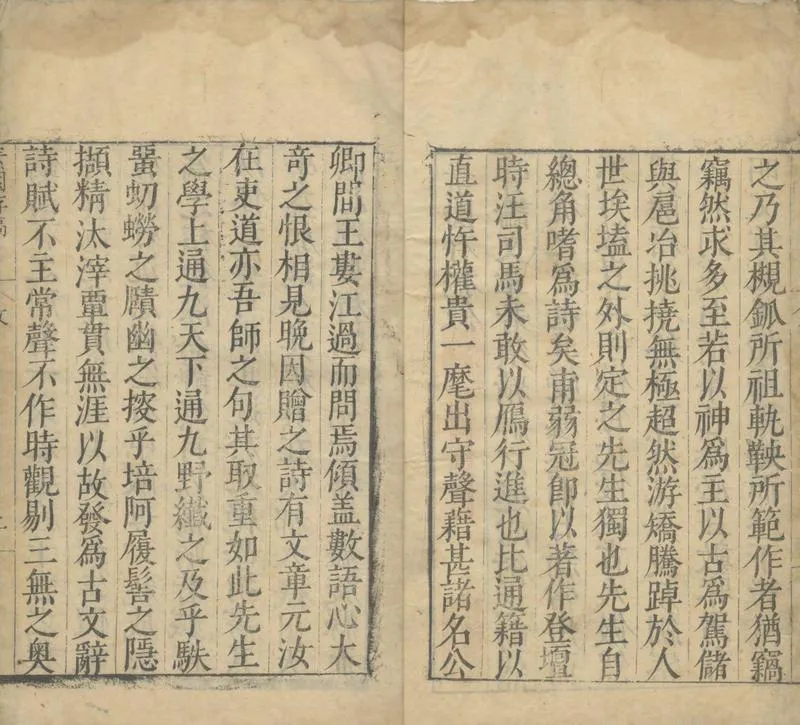 之乃其槻鈲所祖軌鞅所範作者猶竊
竊然求多至若以神為主以古為駕儲
與扈冶挑撓無極超然游矯騰踔於人
世埃壒之外則定之先生獨也先生自
總角嗜為詩矣甫弱冠卽以著作登壇
時汪司馬未敢以鴈行進也比通籍以
直道忤權貴一麾出守聲藉甚諸名公
卿間王婁江過而問焉傾盖數語心大
竒之恨相見晚因贈之詩有文章元汝
在吏道亦吾師之句其取重如此先生
之學上通九天下通九野纖之及乎駃
蜚蚐蟧之賾幽之按乎培阿履髻之隱
擷精汰滓覃貫無涯以故發為古文辭
詩賦不主常聲不作時觀剔三無之奧